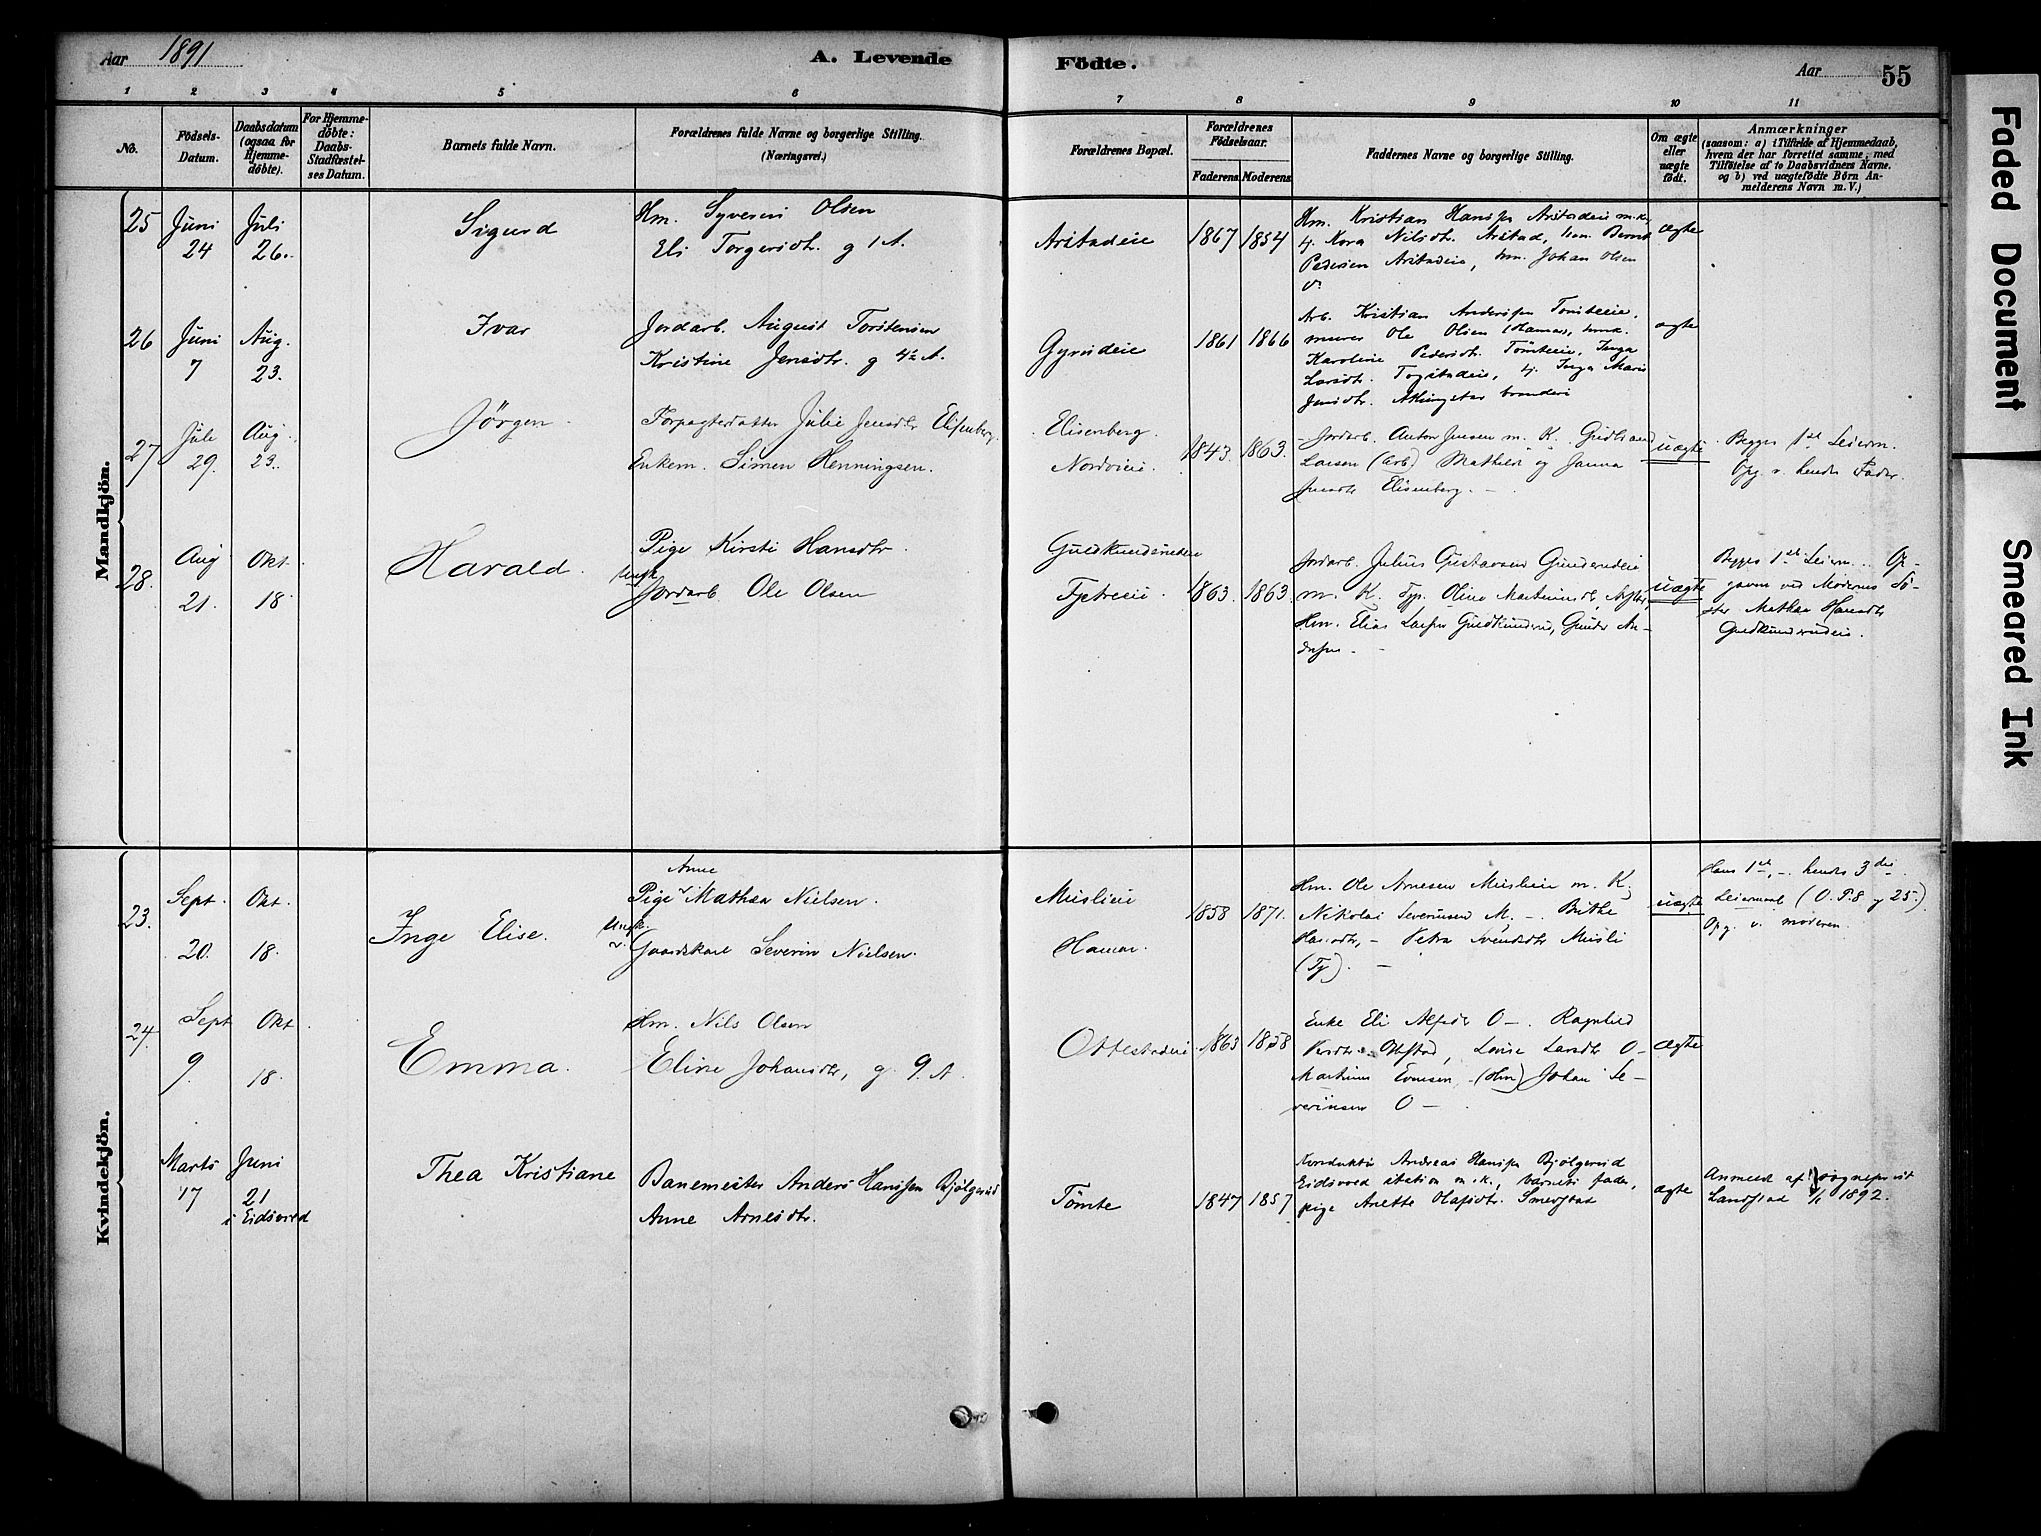 Aar 1891
A. Levende
Födte.
Aar 55
1 2 3 4 5 6 7 8 9 10 11
No.
Födsels-Datum.
Daabsdatum (ogsaa for Hjemmedöbte).
For Hjemmedöbte: Daabs-Stadfæstelses Datum.
Barnets fulde Navn.
Forældrenes fulde Navne og borgerlige Stilling.
(Næringsvei.)
Forældrenes Bopæl.
Forældrenes Födselsaar.
Faderens. Moderens.
Faddernes Navne og borgerlige Stilling.
Om ægte eller uægte födt.
Anmærkninger
(saasom: a) i Tilfælde af Hjemmedaab,
hvem der har forrettet samme, med
Tilföielse af to Daabsvidners Navne.
og b) ved uægtefödte Börn Anmelderens Navn m. V.)
Mandkjön.
25 Juni 24 Juli 26. Sigurd
Hm. Syverin Olsen
Eli Torgersdtr. g 1 A.
Arstadeie 1867 1854
Hm. Kristian Hansen Arstadeie m. k.
Kora Nilsdtr. Arstad, Bernt
Pedersen Arstadeie, hm. Johan Olsen
ægte
26 Juni 7 Aug. 23. Ivar
Jordarb. August Torstensen
Kristine Jensdtr. g 4½ A.
Gyrudeie 1861 1866
Arb. Kristian Andersen Tomteeie,
murer Ole Olsen Hamar,
Karoline Pedersdtr. Tömteeie, Inga
Larsdtr. Togstadeie, Inga Marie
Jensdtr.
ægte
27 Juli 29. Aug. 23. Jörgen.
Forpagterdatter Julie Jensdtr Elisenberg.
Enkem. Simen Henningsen.
Elisenberg.
Nordvieie. 1843. 1863.
Jordarb. Anton Jensen m. K.
Larsen (arb) Mathilde og Janna
Jensdtr Elisenberg.
uægte
Begges 1ste Leierm.
Opg. v. hendes Fader.
28. Aug 21. Okt. 18 Harald.
Pige Kirsti Hansdtr.
Ungk. Jordarb Ole Olsen
Guldkundeneie
1863. 1863.
Jordarb. Julius Gustavsen Gunderudeie
m. K. Tyn. Oline Martinusd.
Hm. Elias Larsen Guldkunderud, Gunder Andersen
uægte
Begges 1ste Leierm. Opgaven ved Moderens Söster Mathea Hansdtr
Guldkunderudeie.
Kvindekjön.
23. Sept. 20. Okt. 18. Inge Elise.
Pige Anne Mathea Nielsen.
Ungk. Gaardskarl Severin Nielsen.
Muslieie
Hamar. 1858 1871.
Hm. Ole Arnesen Muslieie m. K.
Nikolai Severinsen M. Brithe
Hansdtr, Petra Svendsdtr Musli
(Ty).
uægte
Hans 1ste, hendes 3die
Leiermaal (O. P. 8 y 25.)
Opg. v. moderen.
24. Sept 9. Okt 18. Emma.
Hm. Nils Olsen
Eline Johansdtr, g. 9. A.
Ottestadeie 1863 1858
Enke Eli Alfsdtr O—. Ragnhild
Louise Larsdtr O—
Martinus Evensen (Hm) Johan Severinsen O—
ægte
Marts 17 Juni 21 i Eidsvold Thea Kristiane
Banemester Anders Hanssen Bjölgerud
Anne Arnesdtr.
Tömte 1847 1857
Konduktör Andreas Hansen Bjölgerud
Eidsvold station m. k., barnets fader,
pige Anette Olafsdtr. Smedstad
ægte
Anmeld af Sogneprest
Landstad 1/1 1892.
Faded Document
Smeared Ink